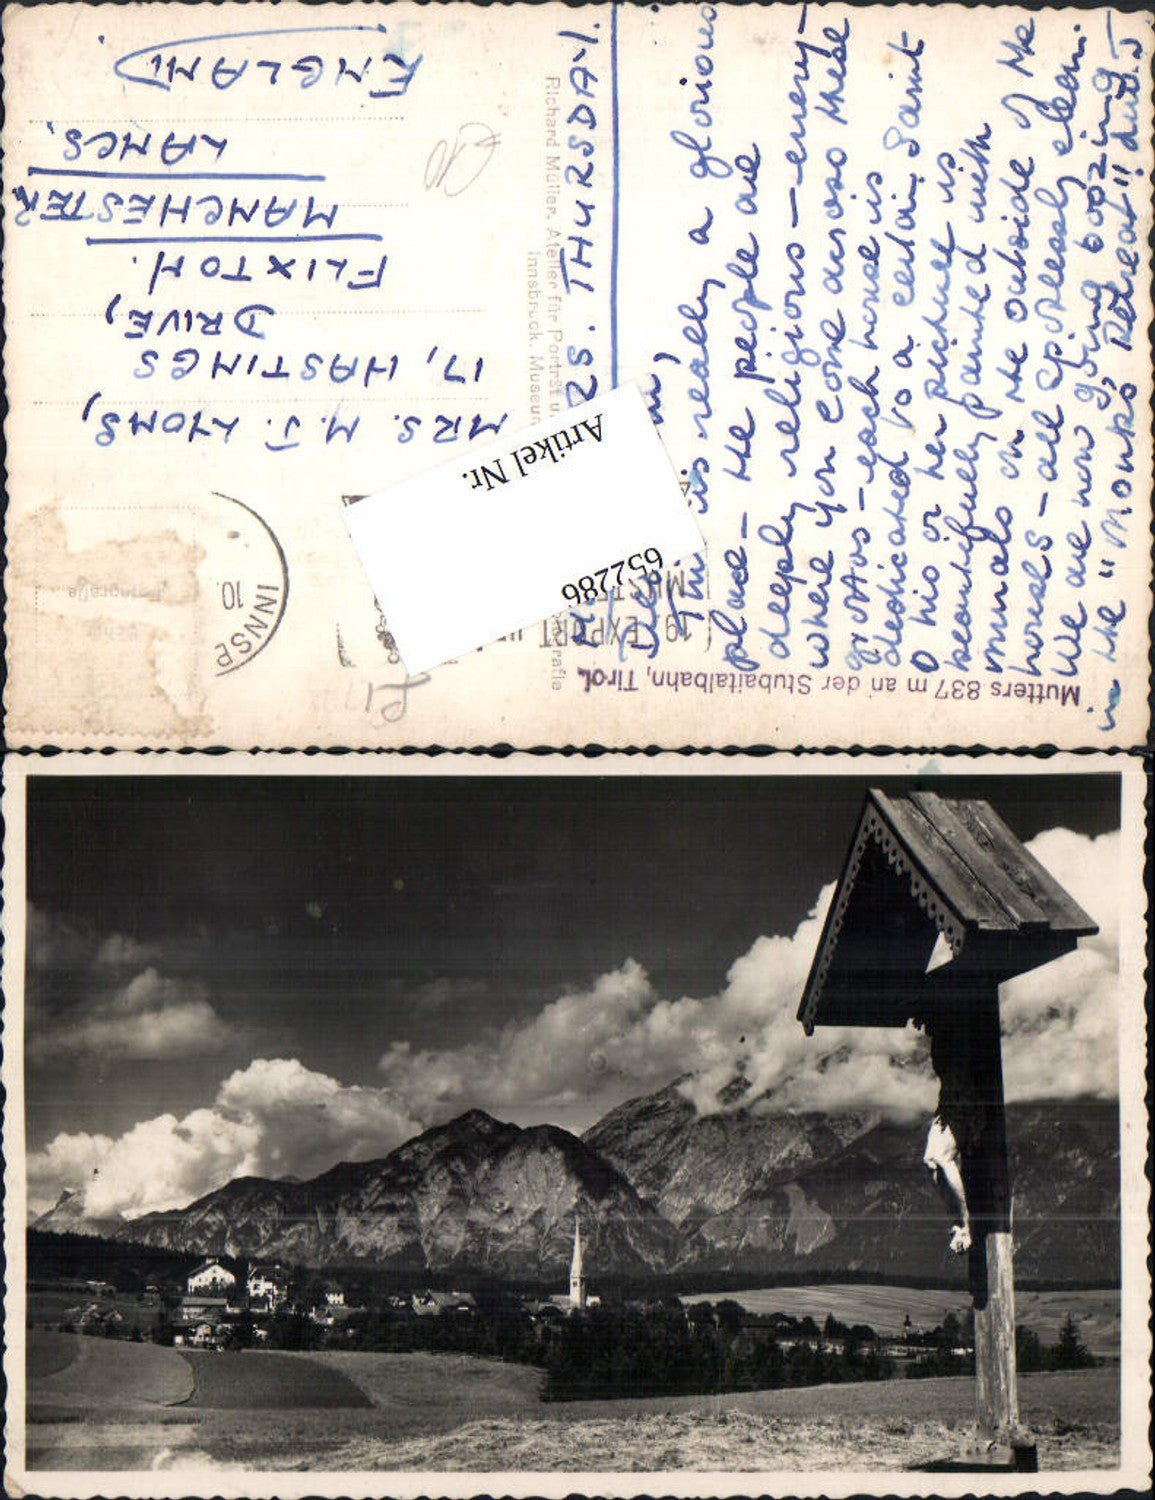 Mutters 837 m an der Stubaitalbahn, Tirol.
MRS. M. J. LYONS,
17, HASTINGS
DRIVE,
FLIXTON.
MANCHESTER
LANCS,
ENGLAND
Richard Müller, Atelier für Porträt u.
Innsbruck, Museum
THURSDAY.
is really a glorious
place – the people are
deeply religious – every-
where you come across these
grottos – each house is
dedicated to a certain Saint
& his or her picture is
beautifully painted with
murals on the outside of the
houses – all spotlessly clean.
We are now going boozing
in the "Monks Retreat"
INNSB
10.
EXPORT
Artikel Nr.
652286